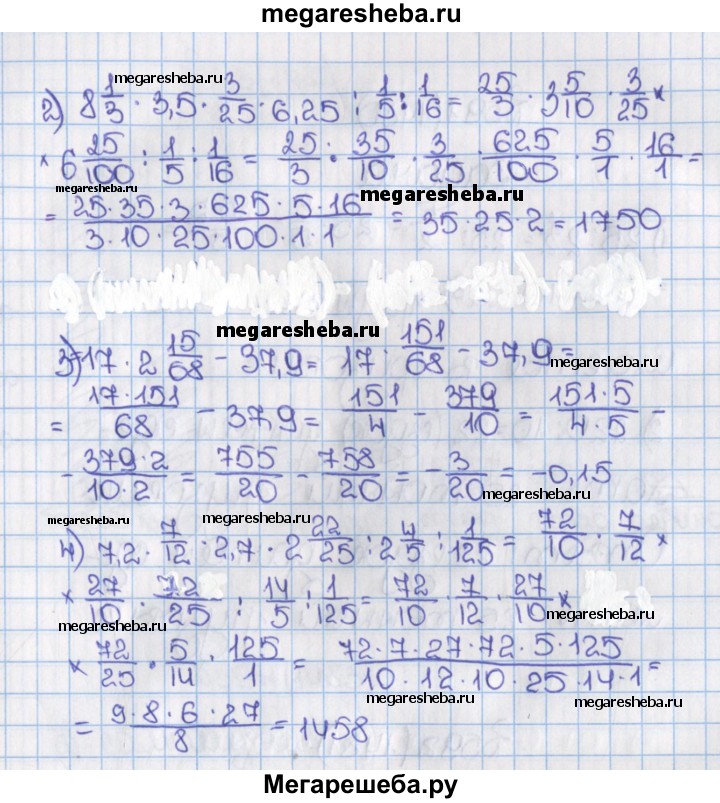 megaresheba.ru
megaresheba.ru
2) 8 1/3 · 3,5 · 3/25 · 6,25 : 1/5 : 1/16 = 25/3 · 3 5/10 · 3/25 ×
× 6 25/100 : 1/5 : 1/16 = 25/3 · 35/10 · 3/25 · 625/100 · 5/1 · 16/1 =
megaresheba.ru
megaresheba.ru
= 25·35·3·625·5·16 / 3·10·25·100·1·1 = 35·25·2 = 1750
megaresheba.ru
3) 17 · 2 15/68 - 37,9 = 17 · 151/68 - 37,9 =
= 17·151/68 - 37,9 = 151/4 - 379/10 = 151·5/4·5 -
- 379·2/10·2 = 755/20 - 758/20 = - 3/20 = -0,15
megaresheba.ru
megaresheba.ru
megaresheba.ru
4) 7,2 · 7/12 · 2,7 · 2 22/25 : 2 4/5 : 1/125 = 72/10 · 7/12 ×
megaresheba.ru
× 27/10 · 72/25 : 14/5 : 1/125 = 72/10 · 7/12 · 27/10 ×
megaresheba.ru
megaresheba.ru
× 72/25 · 5/14 · 125/1 = 72·7·27·72·5·125 / 10·12·10·25·14·1 =
megaresheba.ru
megaresheba.ru
= 9·8·6·27/8 = 1458
megaresheba.ru
megaresheba.ru
Мегарешеба.ру